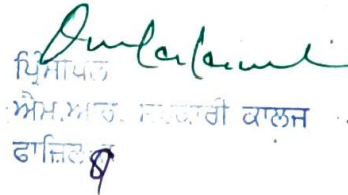 ਪ੍ਰਿੰਸੀਪਲ
ਐਮ.ਆਰ. ਸਰਕਾਰੀ ਕਾਲਜ
ਫਾਜ਼ਿਲਕਾ